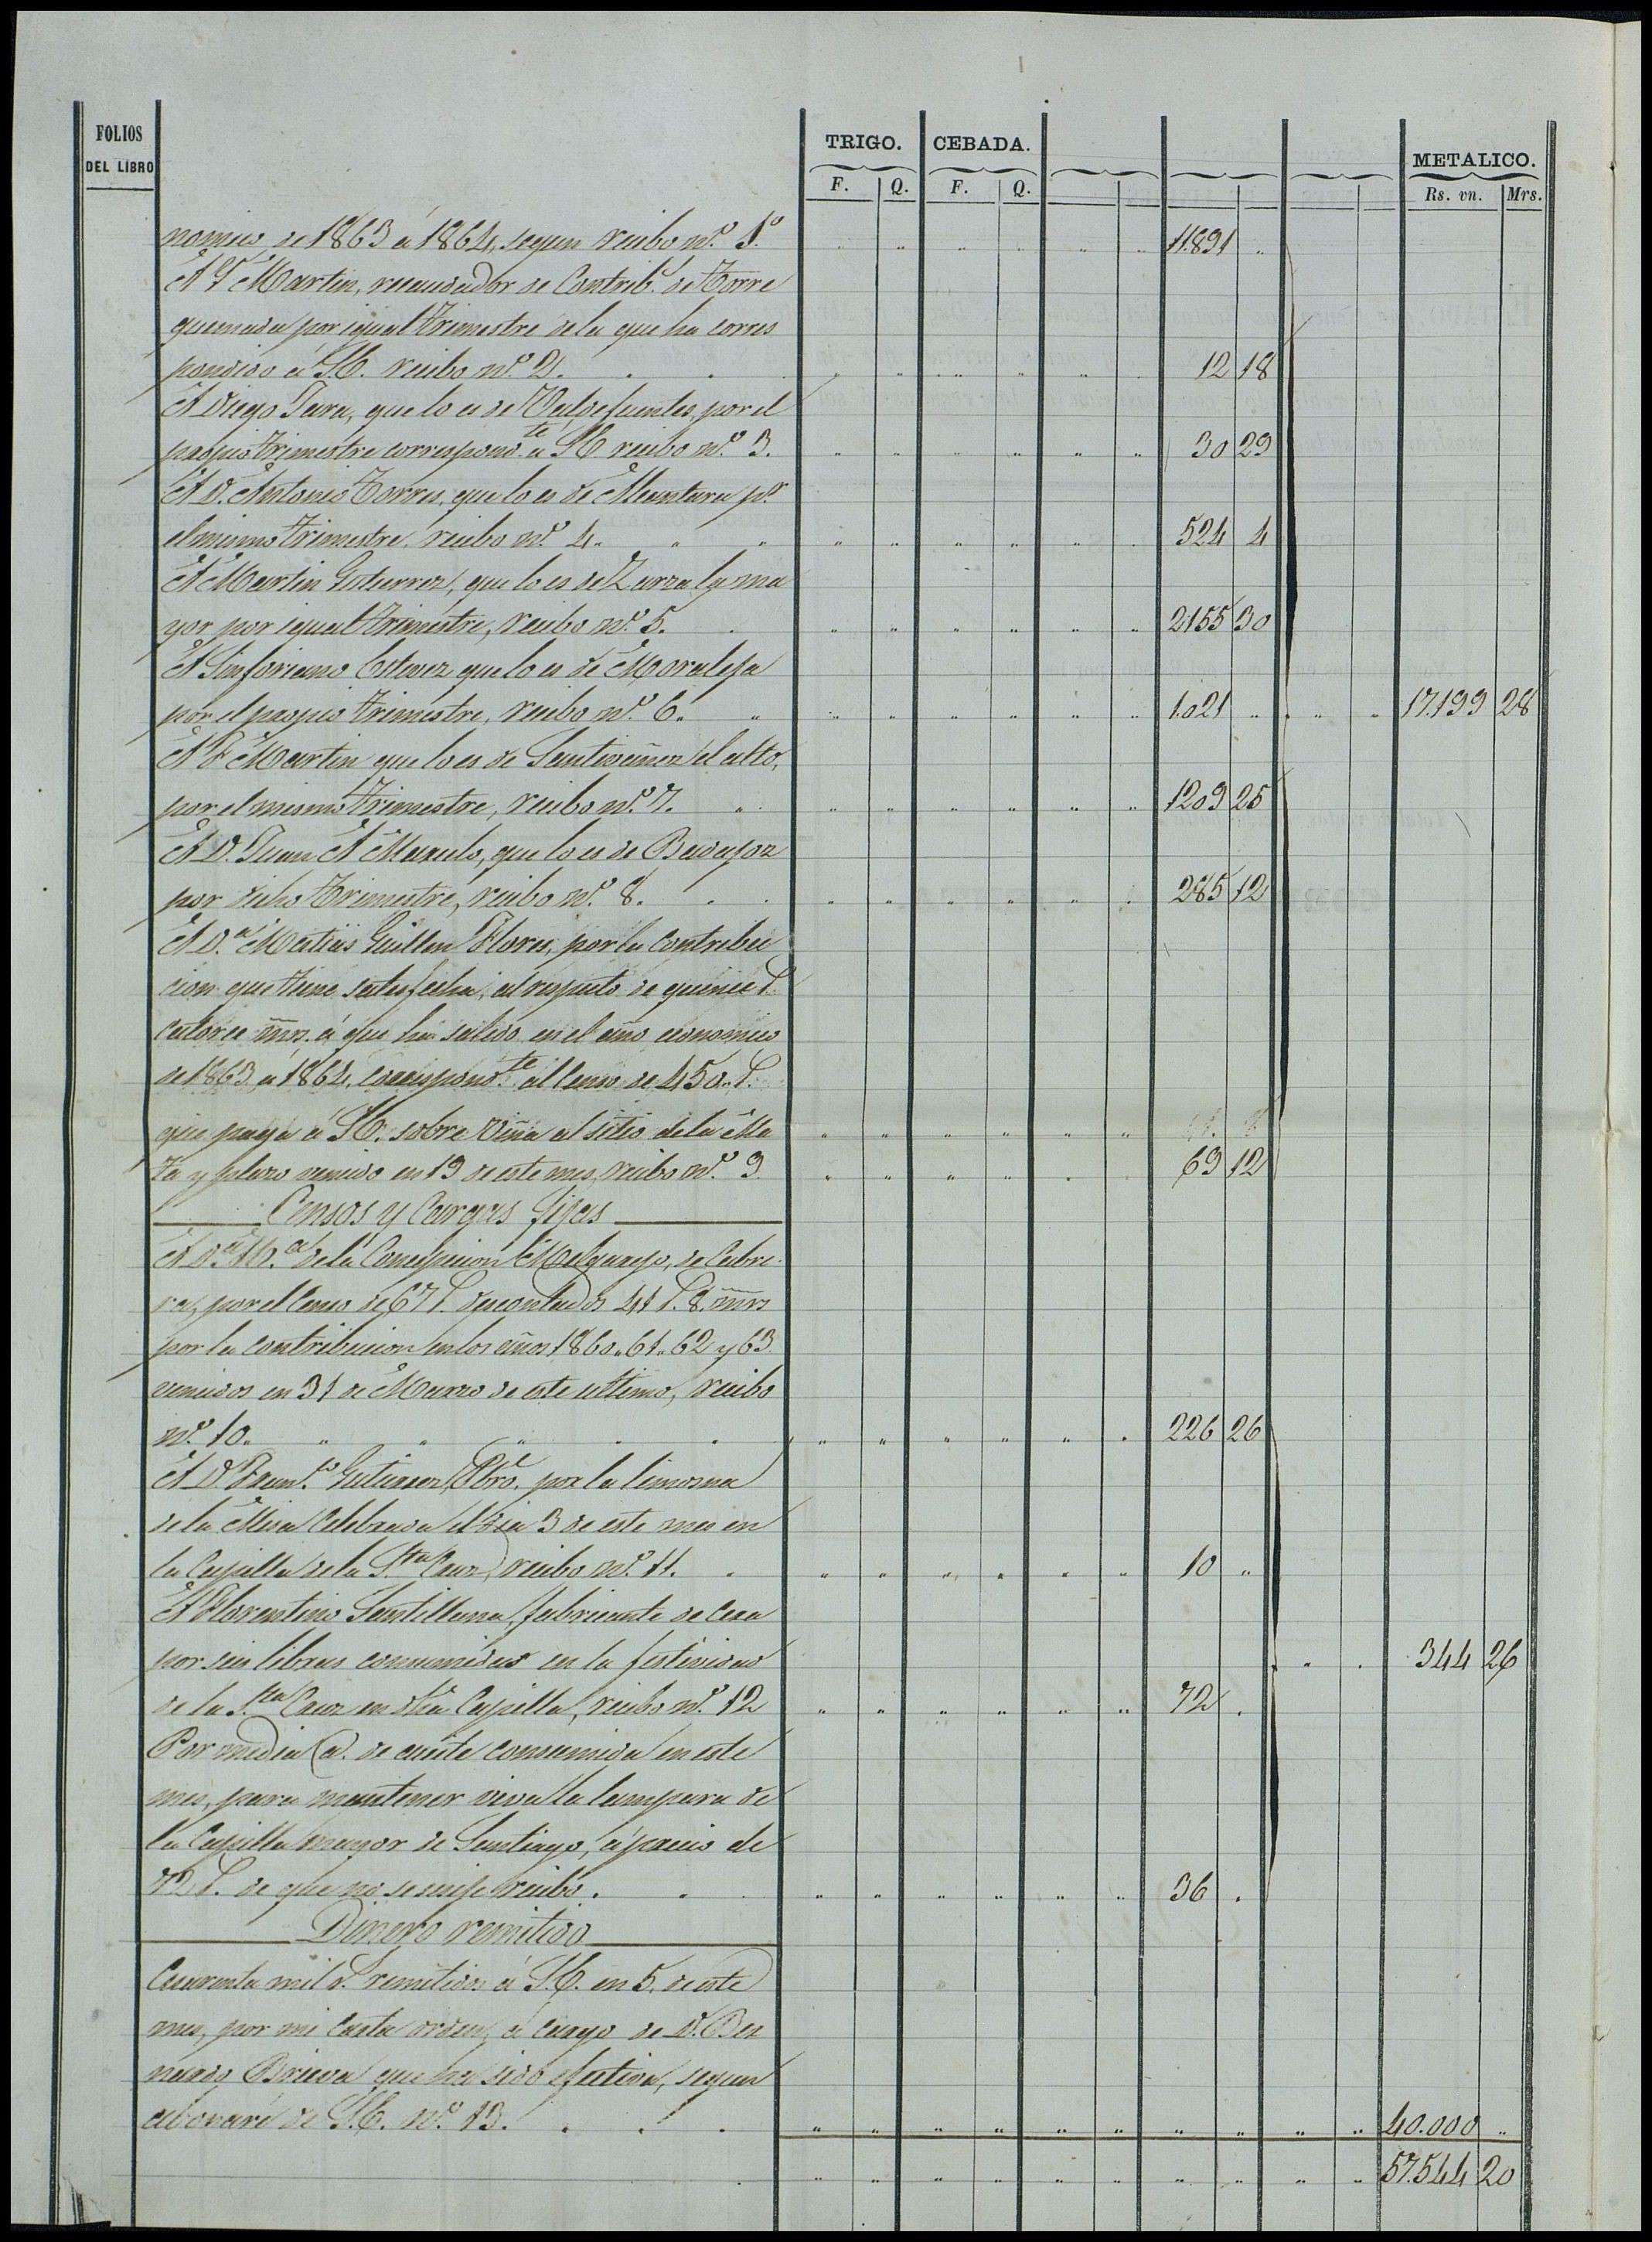 FOLIOS
DEL LIBRO
TRIGO. CEBADA. METALICO.
F. Q. F. Q. Rs. vn. Mrs.
nomico de 1863 á 1864, segun recibo nº 1º " " " " " " 11.891 "
A Fº Martin, recaudador de Contribº de Torre
quemada por igual trimestre de la que ha corres
pondido á S.E. recibo nº 2. " " " " " " 12 18
A Diego Jara, que lo es de Valdefuentes, por el
propio trimestre correspondte á S.E. recibo nº 3. " " " " " " 30 29
A D. Antonio Torres, que lo es de Alcantara pr
el mismo trimestre, recibo nº 4. " " " " " " 524 4
A Martin Gutierrez, que lo es de Zarza la ma
yor por igual trimestre, recibo nº 5. " " " " " " 2155 30
A Sinforiano Estevez que lo es de Moraleja
por el propio trimestre, recibo nº 6. " " " " " " 1.021 " " " 17.199 28
A F. Martin que lo es de Santivañez el alto,
por el mismo trimestre, recibo nº 7. " " " " " " 1209 25
A D. Juan A. , que lo es de Badajoz
por dicho trimestre, recibo nº 8. " " " " " " 285 12
A D.ª Matias Guillen Flores, por la contribu
cion que tiene satisfecha, al respecto de quince r.
catorce mrs. á que ha salido en el año economico
de 1863 á 1864, correspondte al censo de 450 r.
que paga á S.E. sobre viña al sitio de la Ma
ta y plazo vencido en 19 de este mes, recibo nº 9. " " " " " " 69 12
Censos y Cargas fijas
A D.ª M.ª de la Concepcion Melgarejo, de Cabre-
ra, por el Censo de 67 r. descontados 41 r. 8 mrs
por la contribucion en los años 1860. 61. 62 y 63.
vencidos en 31 de Marzo de este ultimo, recibo
nº 10. " " " " " " 226 26
A D. Francº Gutierrez, Pbrº. por la limosna
de la Misa celebrada el dia 3 de este mes en
la Capilla de la Sta Cruz, recibo nº 11. " " " " " " 10 "
A Florentino Santillana, fabricante de cera
por seis libras consumidas en la festividad " " 344 26
de la Sta Cruz en dha Capilla, recibo nº 12 " " " " " " 72 "
Por media @. de aceite consumida en este
mes, para mantener viva la lampara de
la Capilla mayor de Santiago, á precio de
72 r. de que no se exije recibo. " " " " " " 36 "
Dinero remitido
Cuarenta mil r. remitidos á S.E. en 5 de este
mes, por mi Carta orden, á cargo de D. Ber
nardo Brieva que ha sido efectiva, segun
abonaré de S.E. nº 13. " " " " " " " " " " 40.000 "
" " " " " " " " " " 57.544 20